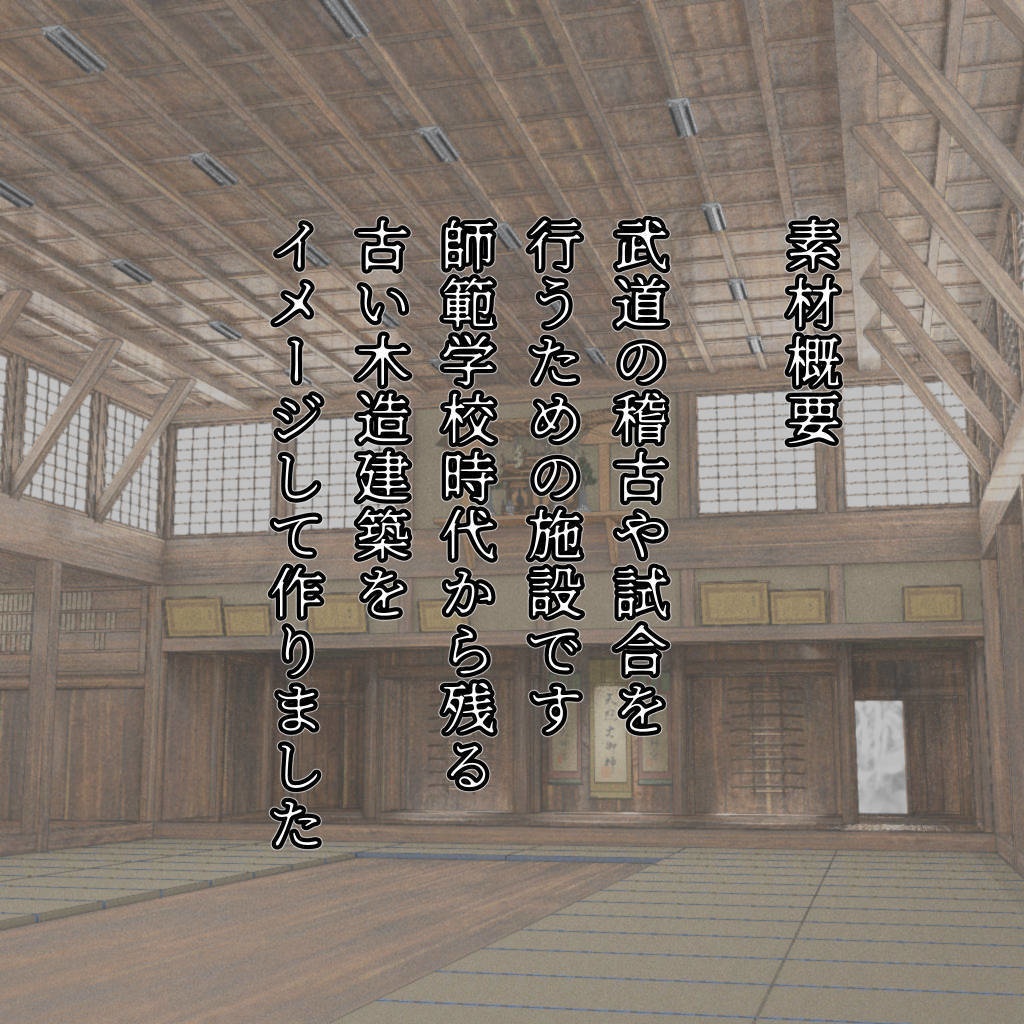 素材概要
武道の稽古や試合を
行うための施設です
師範学校時代から残る
古い木造建築を
イメージして作りました